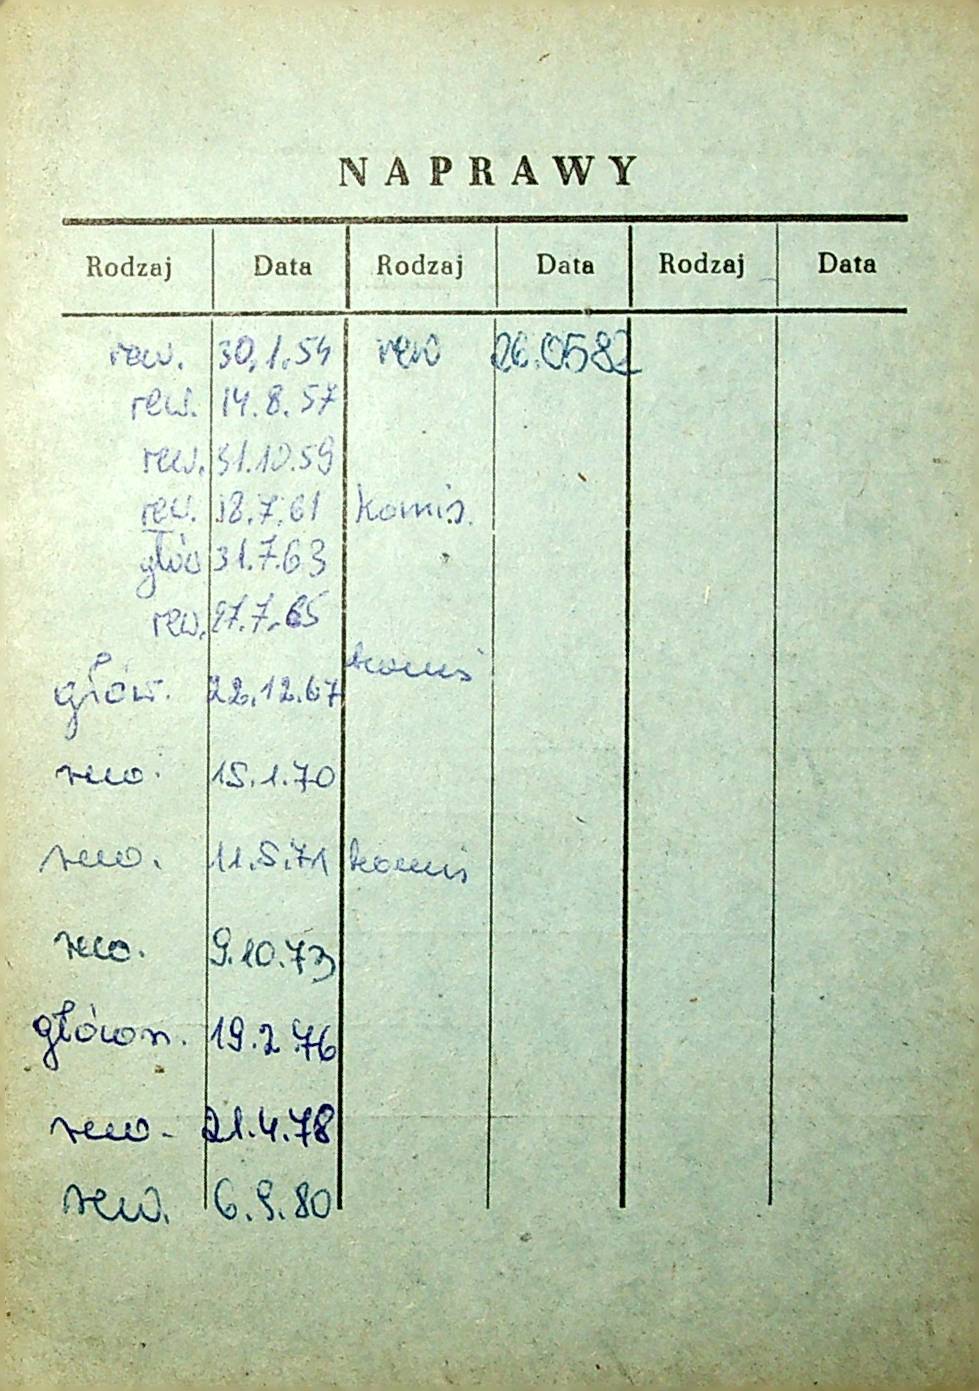 NAPRAWY
Rodzaj Data Rodzaj Data Rodzaj Data
rew. 30.1.54 rew 26.0582
rew. 14.8.57
rew. 31.10.59
rew. 18.7.61 komis.
głów 31.7.63
rew. 27.7.65
komis
głów. 22.12.67
rew. 15.1.70
rew. 11.5.71 komis
rew. 9.10.73
główn. 19.2.76
rew. 21.4.78
rew. 6.9.80